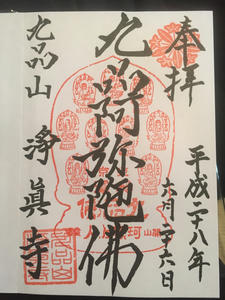 奉拝
平成二十八年
六月二十六日
九品阿弥陀佛
九品山
浄眞寺